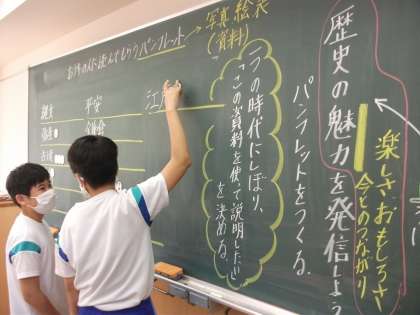 歴史の魅力を発信しよう
楽しさおもしろさ
今とのつながり
パンフレットをつくる。
一つの時代にしぼり、
「この資料を使って説明したい」
を決める。
写真 絵 表
(資料)
の人に読んでもらうパンフレット
縄文
弥生
古墳
平安
鎌倉
江